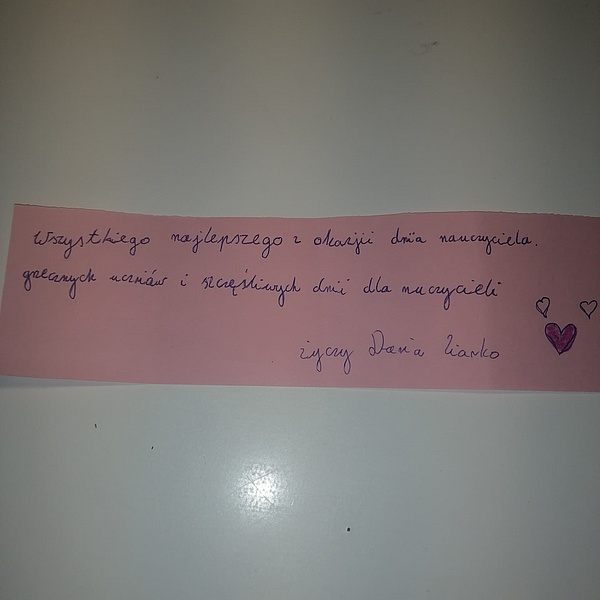 Wszystkiego najlepszego z okazji dnia nauczyciela.
grzecznych uczniów i szczęśliwych dni dla nuczycieli
życzy Daria Ziarko